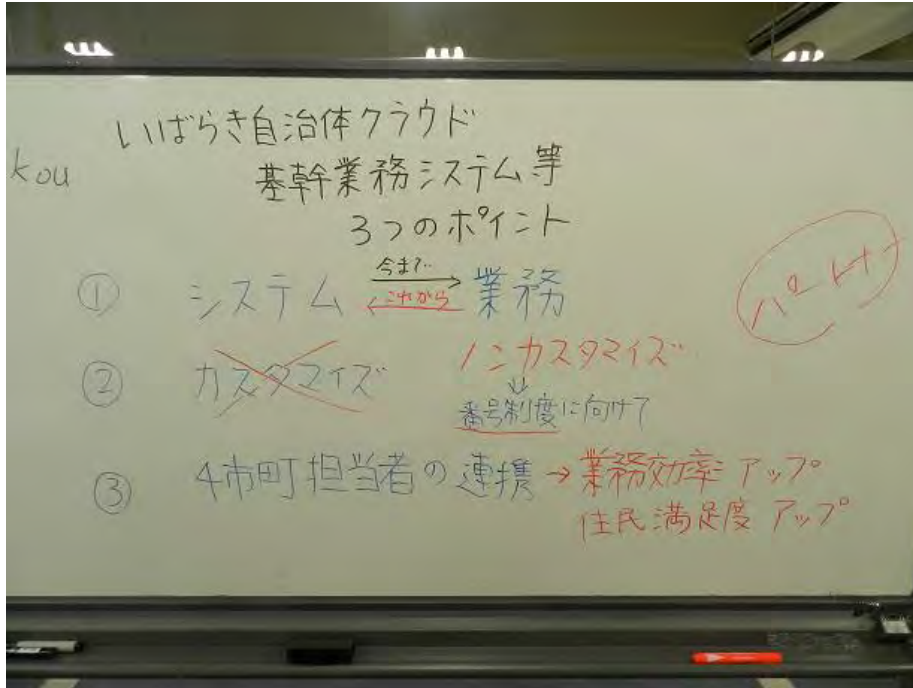 いばらき自治体クラウド
kou
基幹業務システム等
3つのポイント
① システム 今まで‥ → ← これから 業務
パートナー
② カスタマイズ ノンカスタマイズ
⇓
番号制度に向けて
③ 4市町担当者の連携 → 業務効率 アップ
住民満足度 アップ